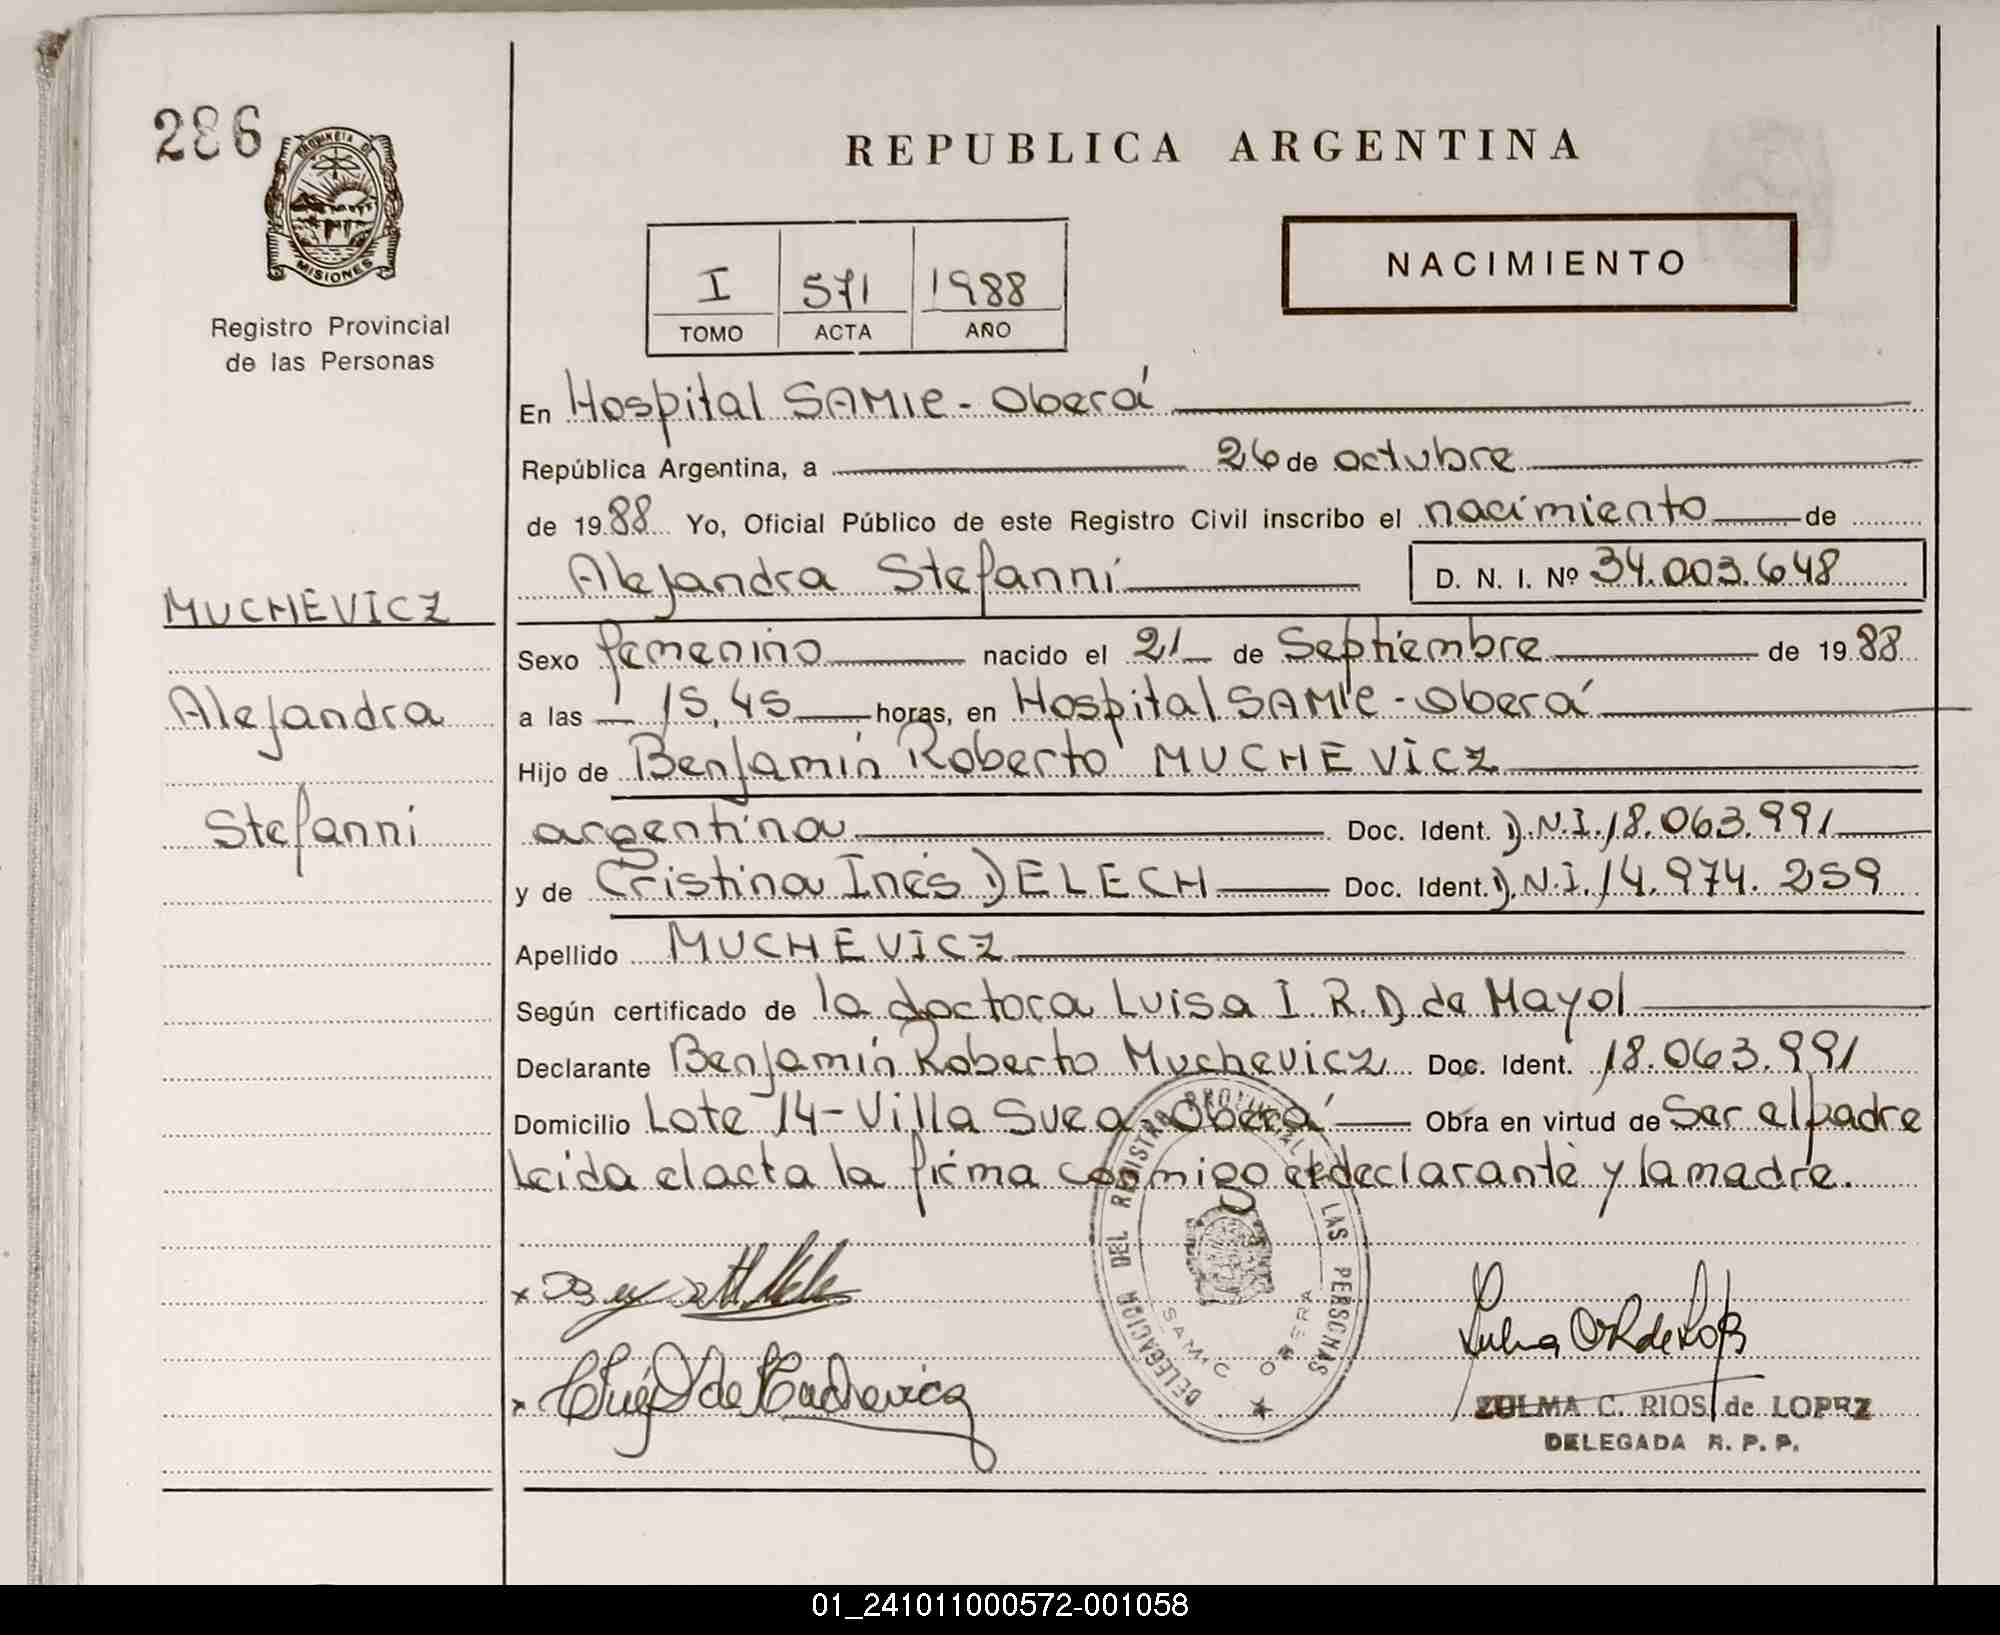 286
PROVINCIA DE
MISIONES
Registro Provincial
de las Personas
REPUBLICA ARGENTINA
I 571 1988
TOMO ACTA AÑO
NACIMIENTO
En Hospital SAMIC - Oberá
República Argentina, a 26 de octubre
de 1988 Yo, Oficial Público de este Registro Civil inscribo el nacimiento de
Alejandra Stefanni D. N. I. Nº 34.003.648
MUCHEVICZ
Alejandra
Stefanni
Sexo femenino nacido el 21 de Septiembre de 1988
a las 15,45 horas, en Hospital SAMIC - Oberá
Hijo de Benjamín Roberto MUCHEVICZ
argentina Doc. Ident. D.N.I. 18.063.991
y de Cristina Inés DELECH Doc. Ident. D.N.I. 14.974.259
Apellido MUCHEVICZ
Según certificado de la doctora Luisa I. R. D de Mayol
Declarante Benjamín Roberto Muchevicz Doc. Ident. 18.063.991
Domicilio Lote 14 - Villa Svea Oberá Obra en virtud de Ser el padre
Leida el acta la firma conmigo el declarante y la madre.
DELEGACION DEL REGISTRO PROVINCIAL LAS PERSONAS
SAMIC OBERA
de Muchevicz
ZULMA C. RIOS de LOPEZ
DELEGADA R. P. P.
01_241011000572-001058